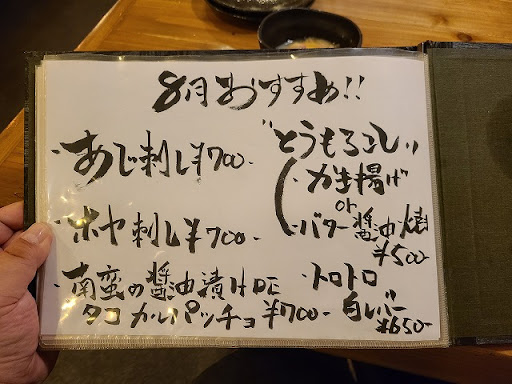 8月おすすめ!!
・あじ刺し¥700-
・ホヤ刺し¥700-
・南蛮の醤油漬けDE
タコカルパッチョ¥700-
"とうもろこし"
・かき揚げ
or
・バター醤油焼
¥500-
・トロトロ
白レバー
¥650-